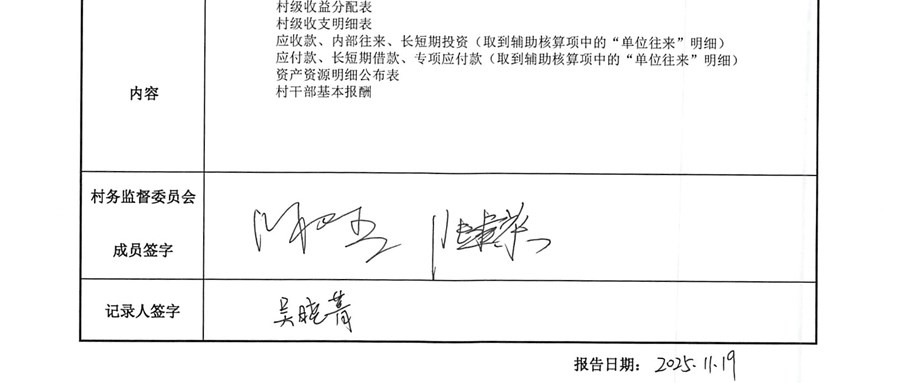 村级收益分配表
村级收支明细表
应收款、内部往来、长短期投资（取到辅助核算项中的“单位往来”明细）
应付款、长短期借款、专项应付款（取到辅助核算项中的“单位往来”明细）
资产资源明细公布表
村干部基本报酬
内容
村务监督委员会
成员签字
记录人签字 吴晓菁
报告日期： 2025.11.19